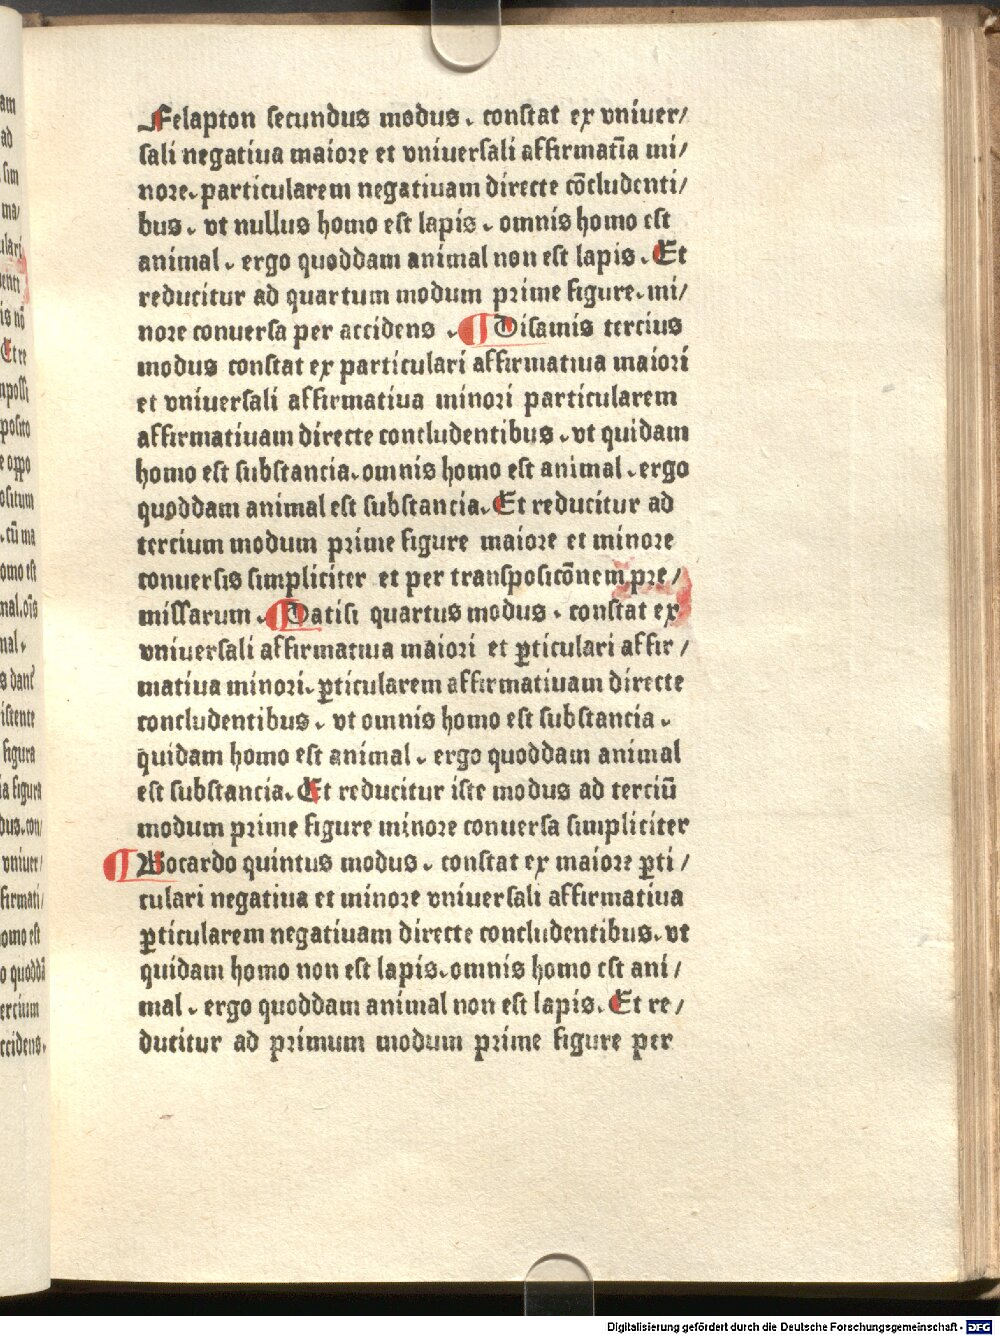 Felapton secundus modus. constat ex vniuer/
sali negatiua maiore et vniuersali affirmatīa mi/
nore. particularem negatiuam directe cōcludenti/
bus. vt nullus homo est lapis. omnis homo est
animal. ergo quoddam animal non est lapis. Et
reducitur ad quartum modum prime figure. mi/
nore conuersa per accidens. ¶ Disamis tercius
modus constat ex particulari affirmatiua maiori
et vniuersali affirmatiua minori particularem
affirmatiuam directe concludentibus. vt quidam
homo est substancia. omnis homo est animal. ergo
quoddam animal est substancia. Et reducitur ad
tercium modum prime figure maiore et minore
conuersis simpliciter et per transposicōnem pre/
missarum. ¶ Datisi quartus modus. constat ex
vniuersali affirmatiua maiori et ꝑticulari affir/
matiua minori. ꝑticularem affirmatiuam directe
concludentibus. vt omnis homo est substancia.
quidam homo est animal. ergo quoddam animal
est substancia. Et reducitur iste modus ad terciū
modum prime figure minore conuersa simpliciter
¶ Bocardo quintus modus. constat ex maiore ꝑti/
culari negatiua et minore vniuersali affirmatiua
ꝑticularem negatiuam directe concludentibus. vt
quidam homo non est lapis. omnis homo est ani/
mal. ergo quoddam animal non est lapis. Et re/
ducitur ad primum modum prime figure per
Digitalisierung gefördert durch die Deutsche Forschungsgemeinschaft - DFG